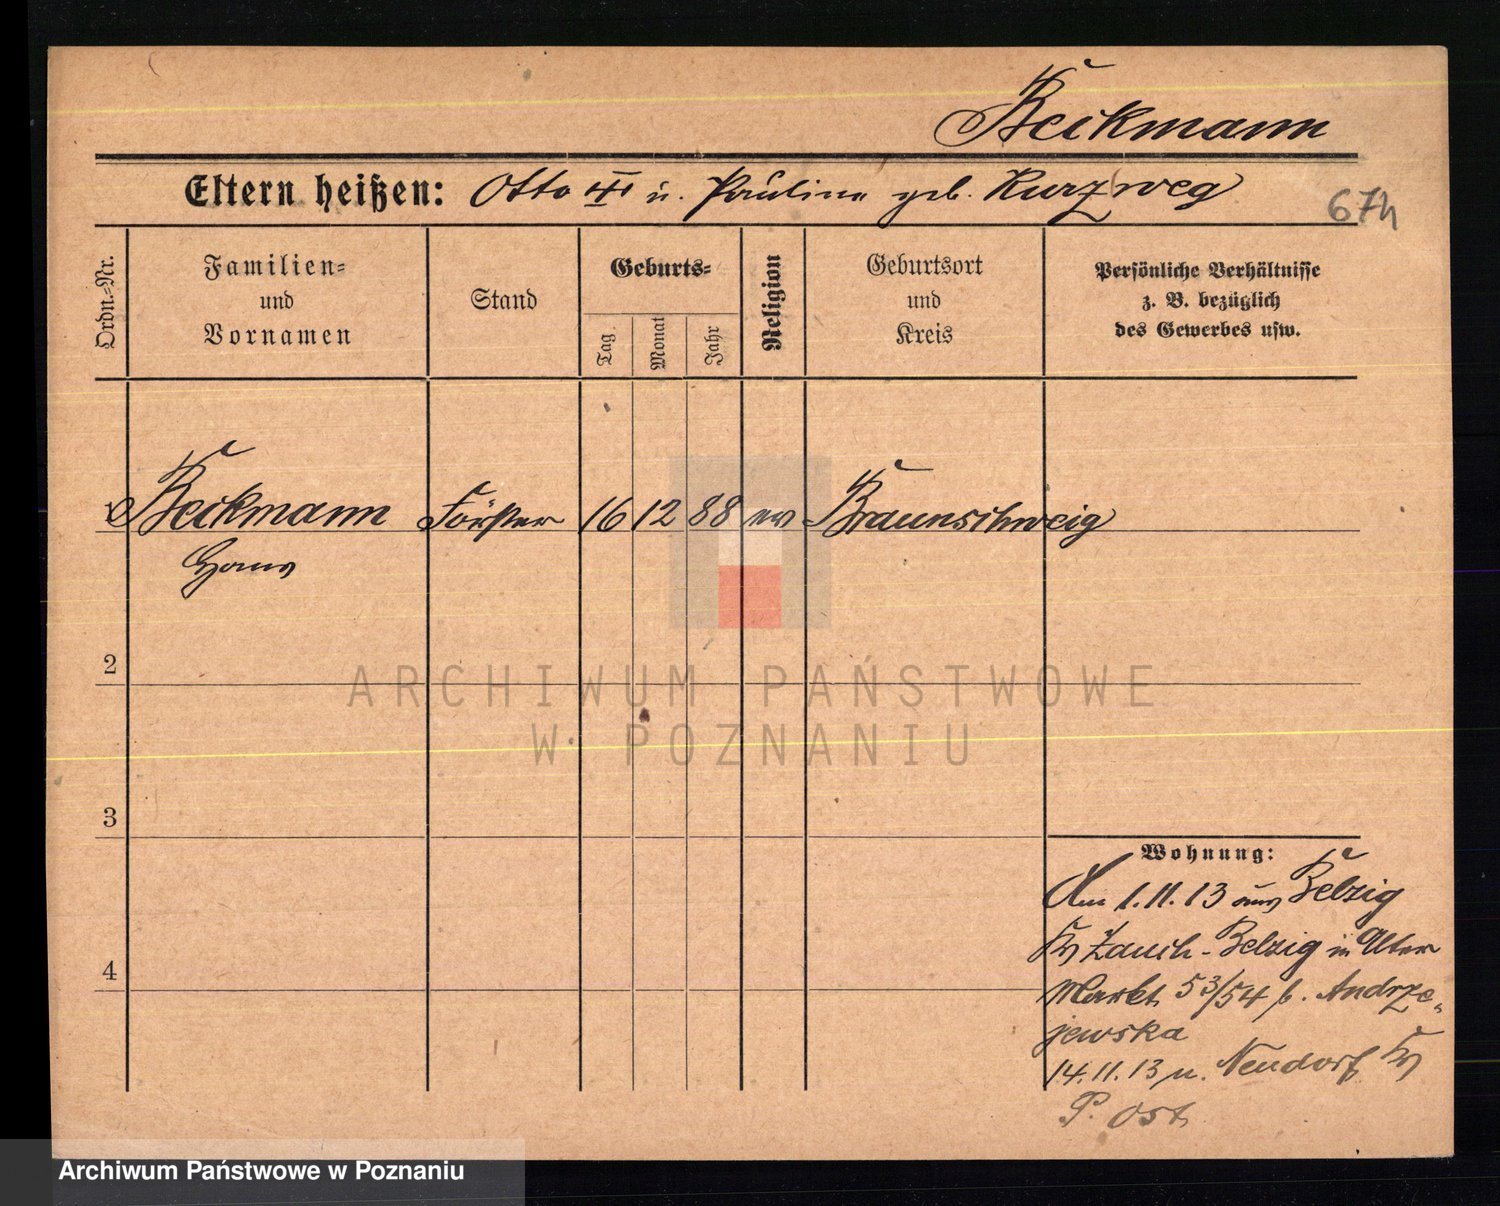 Beckmann
Eltern heißen: Otto III u. Pauline geb. Kurzweg
674
Ordn.-Nr.
Familien- und Vornamen
Stand
Geburts-
Tag
Monat
Jahr
Religion
Geburtsort und Kreis
Persönliche Verhältnisse
z. B. bezüglich
des Gewerbes usw.
1 Beckmann Förster 16 12 88 ev Braunschweig
Hans
2
ARCHIWUM PAŃSTWOWE
W POZNANIU
3
Wohnung:
Am 1.11.13 aus Belzig
Kr Zauch-Belzig in Alter
4
Markt 53/54 b. Andrze-
jewska
14.11.13 n. Neudorf Kr
P. Ost
Archiwum Państwowe w Poznaniu